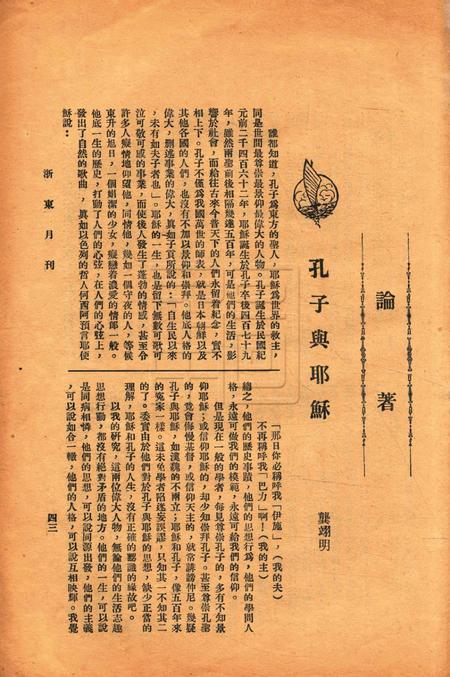 論著
孔子與耶穌
龔翊明
誰都知道,孔子爲東方的聖人,耶穌爲世界的救主,
同是世間最尊崇最景仰最偉大的人物。孔子誕生於民國紀
元前二千四百六十二年,耶穌誕生於孔子卒後四百七十九
年,雖然兩聖前後相隔幾達五百年,可是他們的生活,影
響於社會,而給往古來今普天下的人們永留着紀念,實不
相上下。孔子不僅爲我國萬世的師表,就是日本朝鮮以及
其他各國的人們,也沒有不加以景仰和崇拜。他底人格的
偉大,刪述事業的偉大,眞如子貢所說的:「自生民以來
,未有如夫子者也」。耶穌的一生,也是留下無數可歌可
泣可敬可感的事業,而使後人發生了蓬勃的情感,甚至令
許多人癡情地仰望他,同情他,幾如一個守夜的人,等候
東升的旭日,一個娟潔的少女,癡戀着浪愛的情郎一般。
他底一生的歷史,打動了人們的心弦,在人們的心弦上,
發出了自然的歌曲,眞如以色列的哲人何西阿預言耶使
穌說:
「那日你必稱呼我「伊施」,(我的夫)
不再稱呼我「巴力」啊!(我的主)
總之,他們的歷史事蹟,他們的思想行爲,他們的學問人
格,永遠可做我們的模範,永遠可給我們的信仰。
但是現在一般的學者,每見尊崇孔子的,多有不知景
仰耶穌;或信仰耶穌的,却少知崇拜孔子。甚至尊崇孔聖
的,竟會侮慢基督,或信仰天主的,就常誹謗仲尼。幾疑
孔子與耶穌,如漢魏的不兩立;耶穌和孔子,像五百年來
的寃家一樣。這未免學者陷迷妄誤謬,只知其一不知其二
的了。委實由於他們對於孔子與耶穌的思想,缺少正當的
理解,耶穌和孔子的人生,沒有正確的認識的緣故吧。
以我的硏究,這兩位偉大人物,無論他們的生活志趣
思想行動,都沒有絕對矛盾的地方。他們的一生,可以說
是同病相憐,他們的思想,可以說同源出發,他們的主義
,可以說如合一轍,他們的人格,可以說互相映輝。我覺
浙東月刊
四三